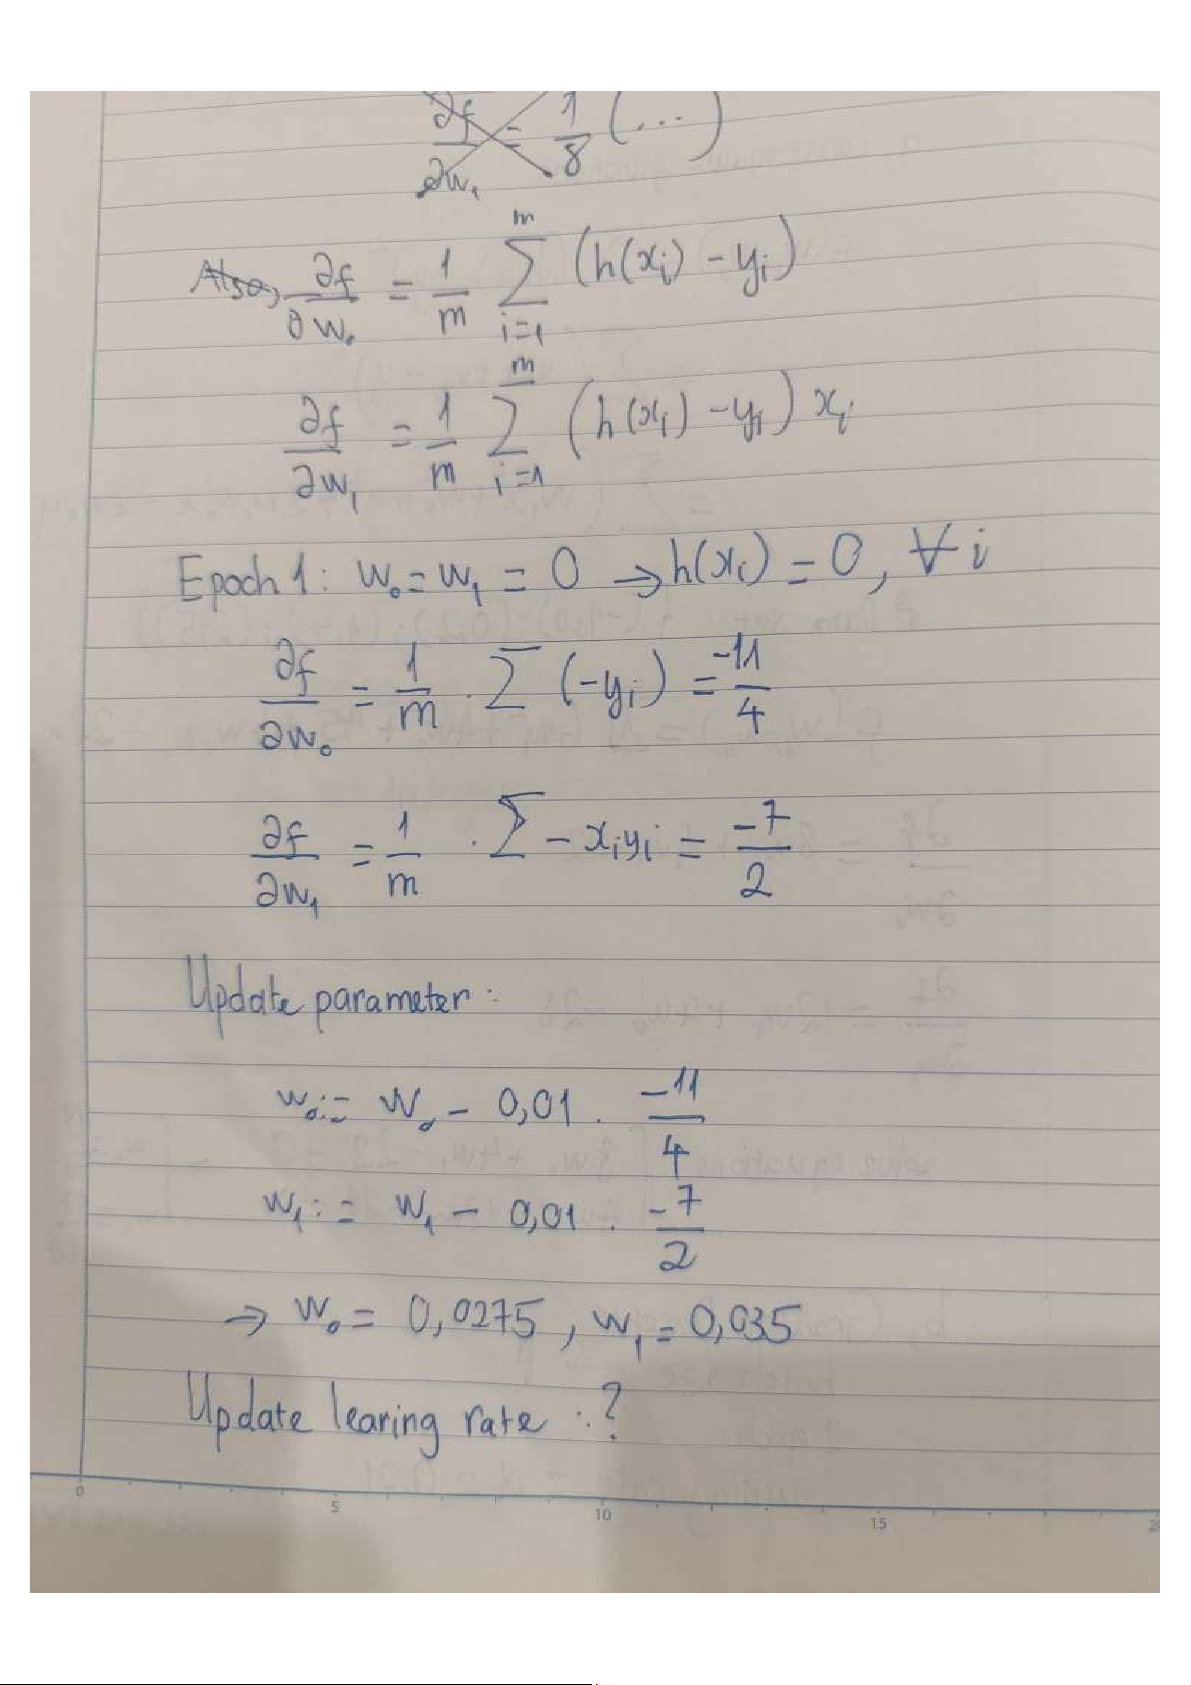 ∂f/∂w₁ = 1/8 (...)
Also, ∂f/∂w₀ = 1/m ∑_{i=1}^{m} (h(xᵢ) - yᵢ)
∂f/∂w₁ = 1/m ∑_{i=1}^{m} (h(xᵢ) - yᵢ) xᵢ
Epoch 1: w₀ = w₁ = 0 → h(xᵢ) = 0, ∀ i
∂f/∂w₀ = 1/m . ∑ (-yᵢ) = -11/4
∂f/∂w₁ = 1/m . ∑ - xᵢyᵢ = -7/2
Update parameter:
w₀ := w₀ - 0,01 . -11/4
w₁ := w₁ - 0,01 . -7/2
→ w₀ = 0,0275, w₁ = 0,035
Update learing rate :?
0 5 10 15